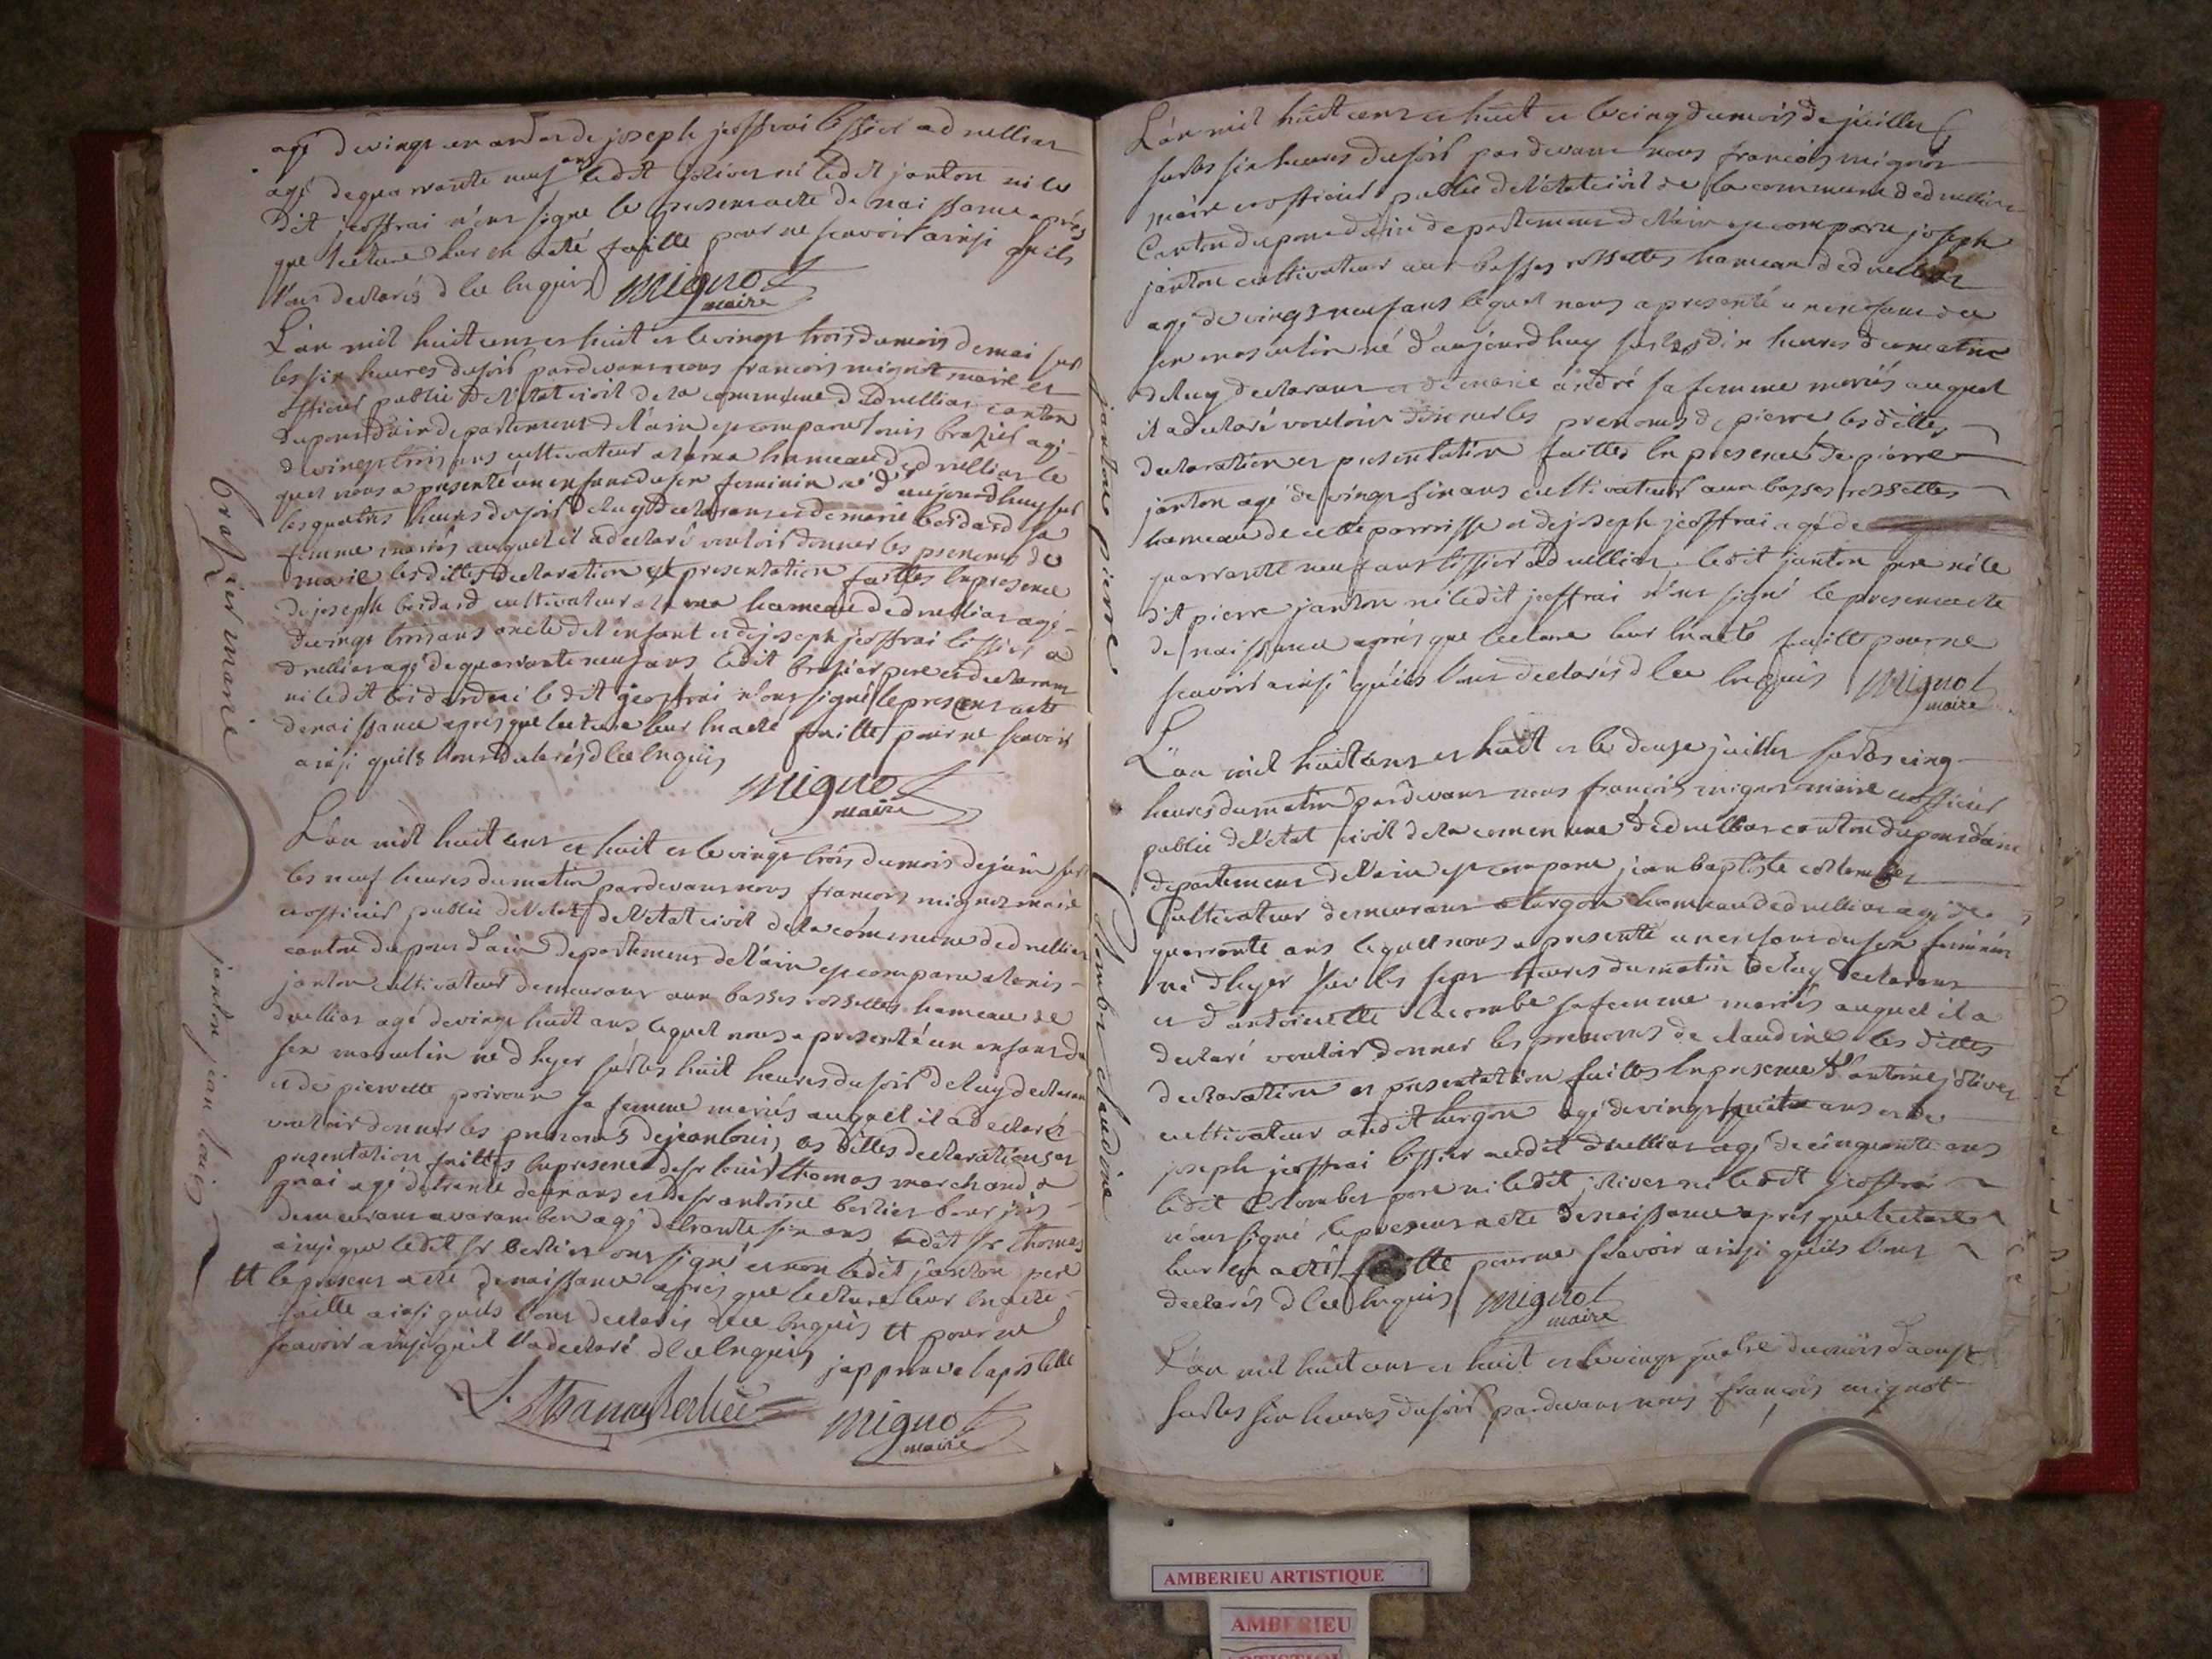 agé de vingt un an et de joseph jeoffrai tissier a druillias
agé de quarrante neuf ans ledit jolivet ni ledit janton ni le
dit jeoffrai n'ont signe le present acte de naissance après
que lecture leur en a eté faitte pour ne scavoir ainsi qu'ils
l'ont declarés d ce enquis Mignot
maire
L'an mil huit cent et huit et le vingt trois du mois de mai sur
les six heures du soir pardevant nous francois mignot maire et
officier public de l'etat civil de la commune de druillias canton
du pont d'ain departement de l'ain est comparu louis brasier agé
de vingt trois ans cultivateur a hameau de druillias le
quel nous a presenté un enfant du sex feminin né d'aujourd huy sur
les quatres heures du soir de luy declarant et de marie bordard sa
femme mariés auquel il a declaré vouloir donner les prenoms de
marie les dittes declaration et presentation faittes en presence
de joseph bordard cultivateur a hameau de druillias agé
de vingt trois ans oncle de l'enfant et de joseph jeoffrai tissier a
druillias agé de quarrante neuf ans ledit brasier pere et declarant
ni ledit bordard ni le dit jeoffrai n'ont signé le present acte
de naissance après que lecture leur en a eté faitte pour ne scavoir
ainsi qu'ils l'ont declarés d ce enquis
Mignot
maire
Brasier marie
L'an mil huit cent et huit et le vingt trois du mois de juin sur
les neuf heures du matin pardevant nous francois mignot maire
et officier public de l'etat de l'etat civil de la commune de druillias
canton du pont d'ain departement de l'ain est comparu
janton cultivateur demeurant aux basses rossettes hameau de
druillias agé de vingt huit ans lequel nous a presenté un enfant du
sex masculin né d'hyer sur les huit heures du soir de luy declarant
et de pierrette sa femme mariés auquel il a declaré
vouloir donner les prenoms de jean louis les dittes declaration et
presentation faittes en presence de sr louis thomas marchand a
agé de trente deux ans et de sr antoine berlier bourjois
demeurant a varambon agé de trante six ans ledit sr thomas
ainsi que ledit sr berlier ont signé et non ledit janton pere
tt le present acte de naissance après que lecture leur en a eté
faitte ainsi qu'ils l'ont declarés d ce enquis tt pour ne
scavoir ainsi qu'il l'a declaré d ce enquis japprouve lapostille
L. Thomas Berlier Mignot
maire
janton jean louis
L'an mil huit cent et huit et le cinq du mois de juillet
sur les six heures du soir pardevant nous francois mignot
maire et officier public de l'etat civil de la commune de druillias
Canton du pont d'ain departement de l'ain est comparu joseph
janton cultivateur aux basses rossettes hameau de druillias
agé de vingt neuf ans lequel nous a presenté un enfant du
sex masculin né d'aujourd huy sur les dix heures du matin
de luy declarant et de marie andré sa femme mariés auquel
il a declaré vouloir donner les prenoms de pierre les dittes
declaration et presentation faittes en presence de pierre
janton agé de vingt six ans cultivateur aux basses rossettes
hameau de cette parroisse et de joseph jeoffrai agé de
quarrante neuf ans tissier a druillias ledit janton pere ni le
dit pierre janton ni ledit jeoffrai n'ont signé le present acte
de naissance après que lecture leur en a eté faitte pour ne
scavoir ainsi qu'ils l'ont declarés d ce enquis Mignot
maire
janton pierre
L'an mil huit cent et huit et le douze juillet sur les cinq
heures du matin pardevant nous francois mignot maire et officier
public de l'etat civil de la commune de druillias canton du pont d'ain
departement de l'ain est comparu jean baptiste colombet
Cultivateur demeurant a turgon hameau de druillias agé de
quarrante ans lequel nous a presenté un enfant du sex feminin
né d'hyer sur les sept heures du matin de luy declarant
et d'antoinette lacombe sa femme mariés auquel il a
declaré vouloir donner les prenoms de claudine les dittes
declaration et presentation faittes en presence d'antoine jolivet
cultivateur audit turgon agé de vingt huit ans et de
joseph jeoffrai tissier audit druillias agé de cinquante ans
ledit colombet pere ni ledit jolivet ni ledit jeoffrai
n'ont signé le present acte de naissance après que lecture
leur en a eté faitte pour ne scavoir ainsi qu'ils l'ont
declarés d ce enquis Mignot
maire
Colombet claudine
L'an mil huit cent et huit et le vingt quatre du mois d'aoust
sur les six heures du soir pardevant nous françois mignot
AMBERIEU ARTISTIQUE
AMBERIEU
ARTISTIQUE